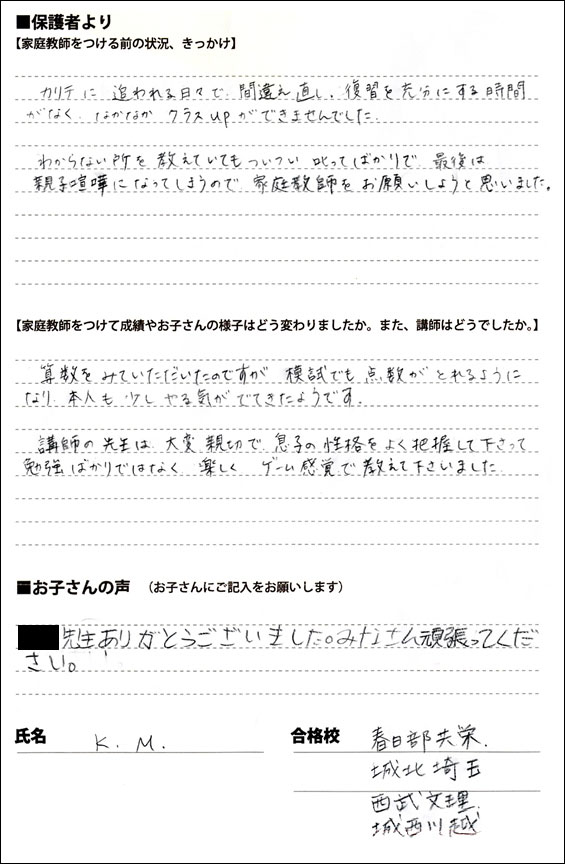 ■保護者より
【家庭教師をつける前の状況、きっかけ】
カリテに 追われる日々で、間違え直し、復習を充分にする時間
がなく、なかなか クラスupができませんでした。
わからない所を 教えていてもついつい 叱ってばかりで、最後は
親子喧嘩になってしまうので 家庭教師を お願いしようと思いました。
【家庭教師をつけて成績やお子さんの様子はどう変わりましたか。また、講師はどうでしたか。】
算数をみていただいたのですが 模試でも 点数が とれるように
なり、本人も 少し やる気が でてきたようです。
講師の先生は、大変 親切で、息子の性格をよく把握して下さって
勉強ばかりではなく 楽しく ゲーム感覚で教えて下さいました
■お子さんの声 （お子さんにご記入をお願いします）
先生ありがとうございました。みなさん頑張ってくだ
さい。
氏名 K. M. 合格校 春日部共栄.
城北埼玉
西武文理.
城西川越